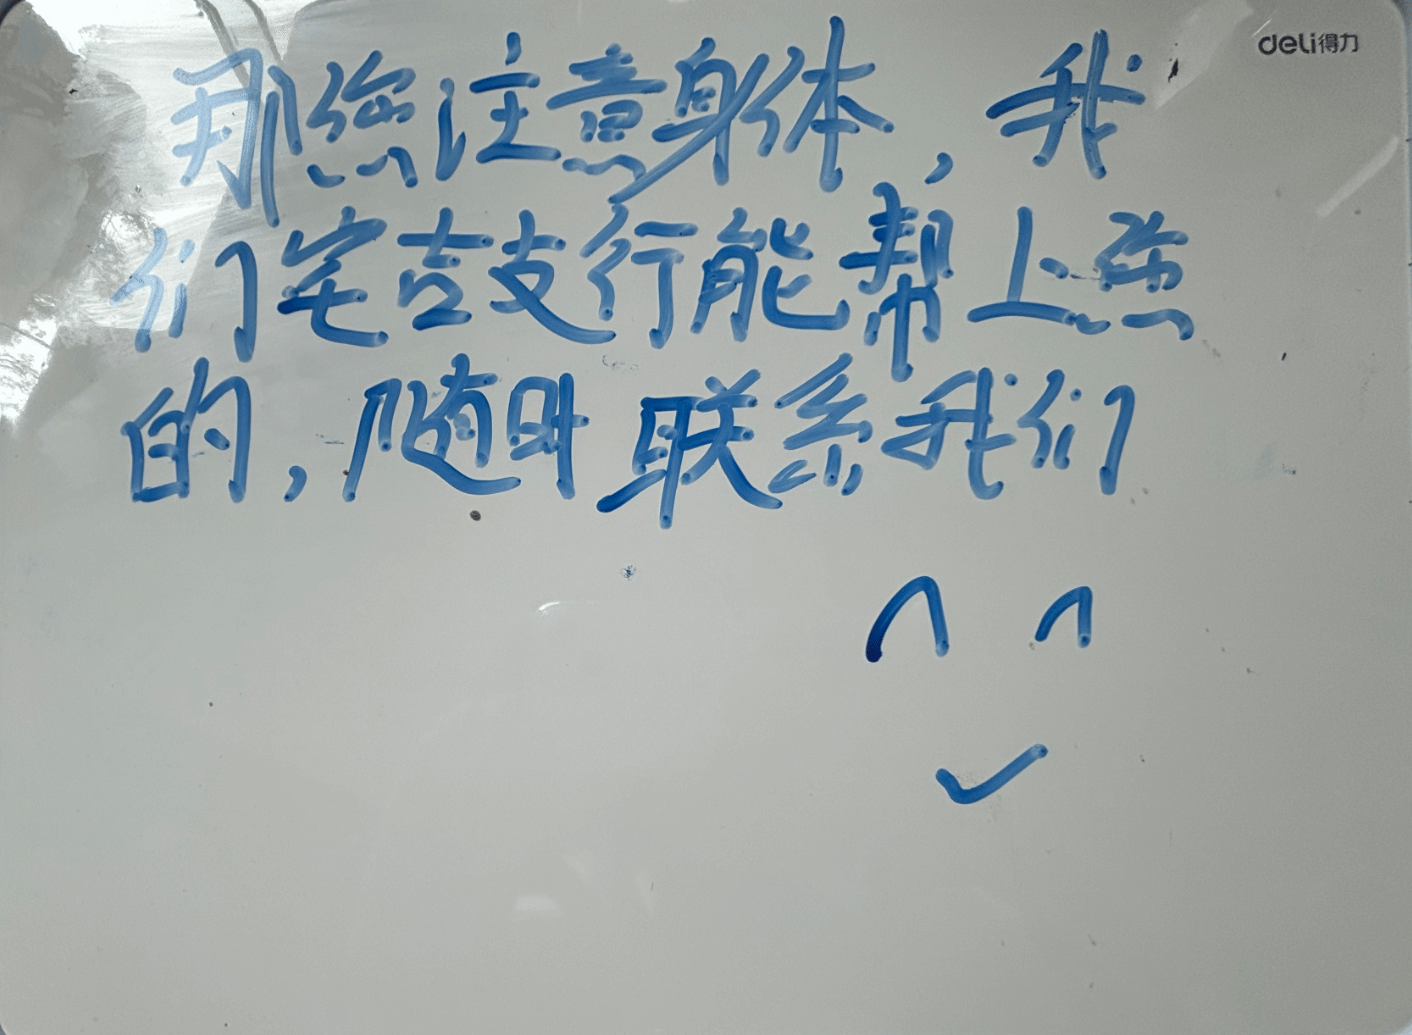 deli得力
那您注意身体，我
们宅吉支行能帮上您
的，随时联系我们